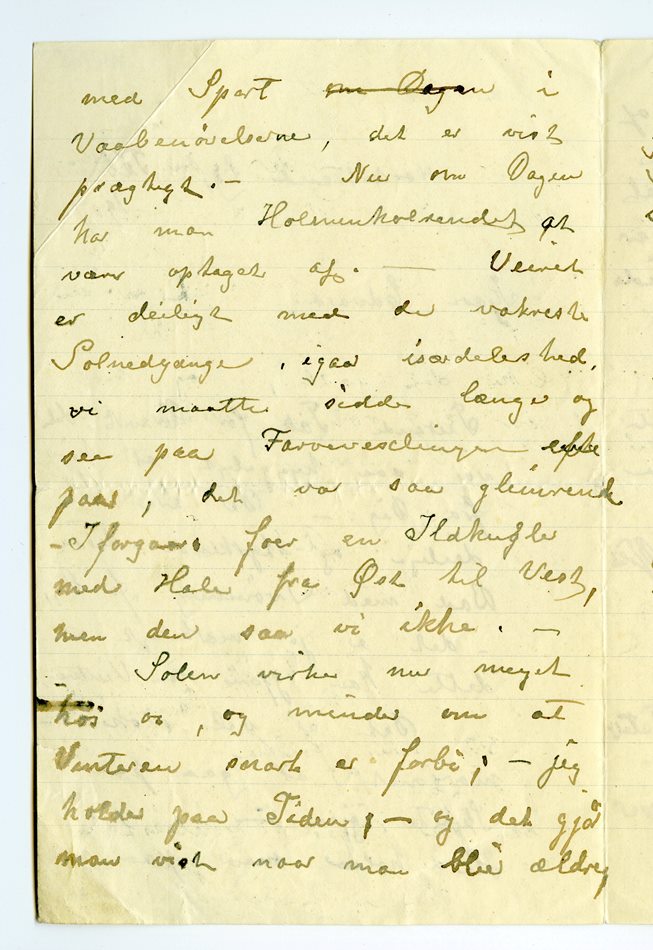 med Sport om Dagen i
Vaabenövelserne, det er vist
prægtigt. – Nu om Dagen
har man Holmenkolrendet at
være optaget af. — Veiret
er deiligt med de vakreste
Solnedgange, igaar isærdeleshed,
vi maatte sidde længe og
see paa Farvevexlingen efte
paa, det var saa glimrende
– Iforgaars foer en Ildkugle
med Hale fra Øst til Vest,
men den saa vi ikke. –
Solen virker nu meget
hos os, og minder om at
Vinteren snart er forbi; – jeg
holder paa Tiden, – og det gjør
man vist naar man blir ældre,